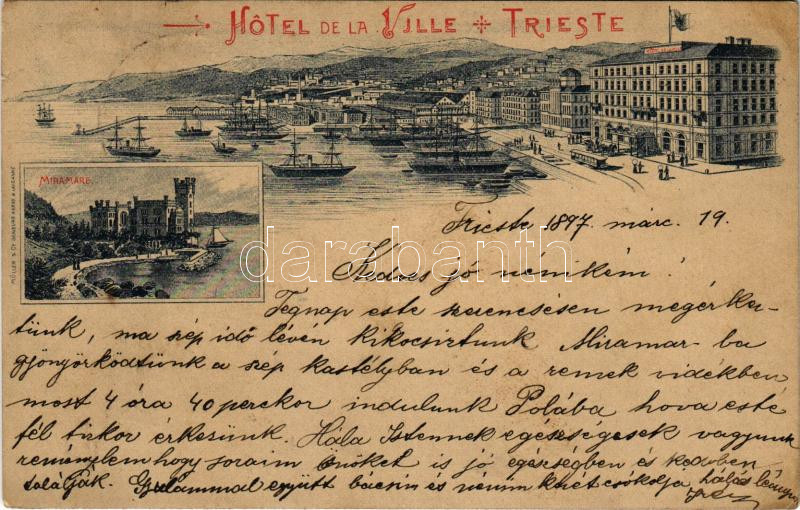 HÔTEL DE LA VILLE * TRIESTE
MIRAMARE.
darabanth
Trieste 1897. márc. 19.
Kedves jó nénikém!
Tegnap este szerencsésen megérkez-
tünk, ma szép idő lévén kikocsiztunk Miramar-ba
gyönyörködtünk a szép kastélyban és a remek vidékben
most 4 óra 40 perckor indulunk Polába hova este
fél tizkor érkezünk. Hála Istennek egészségesek vagyunk
reménylem hogy soraim Önöket is jó egészségben és kedvben
találják. Gyulámmal együtt bácsin és nénim kezét csókolja hálás leánya